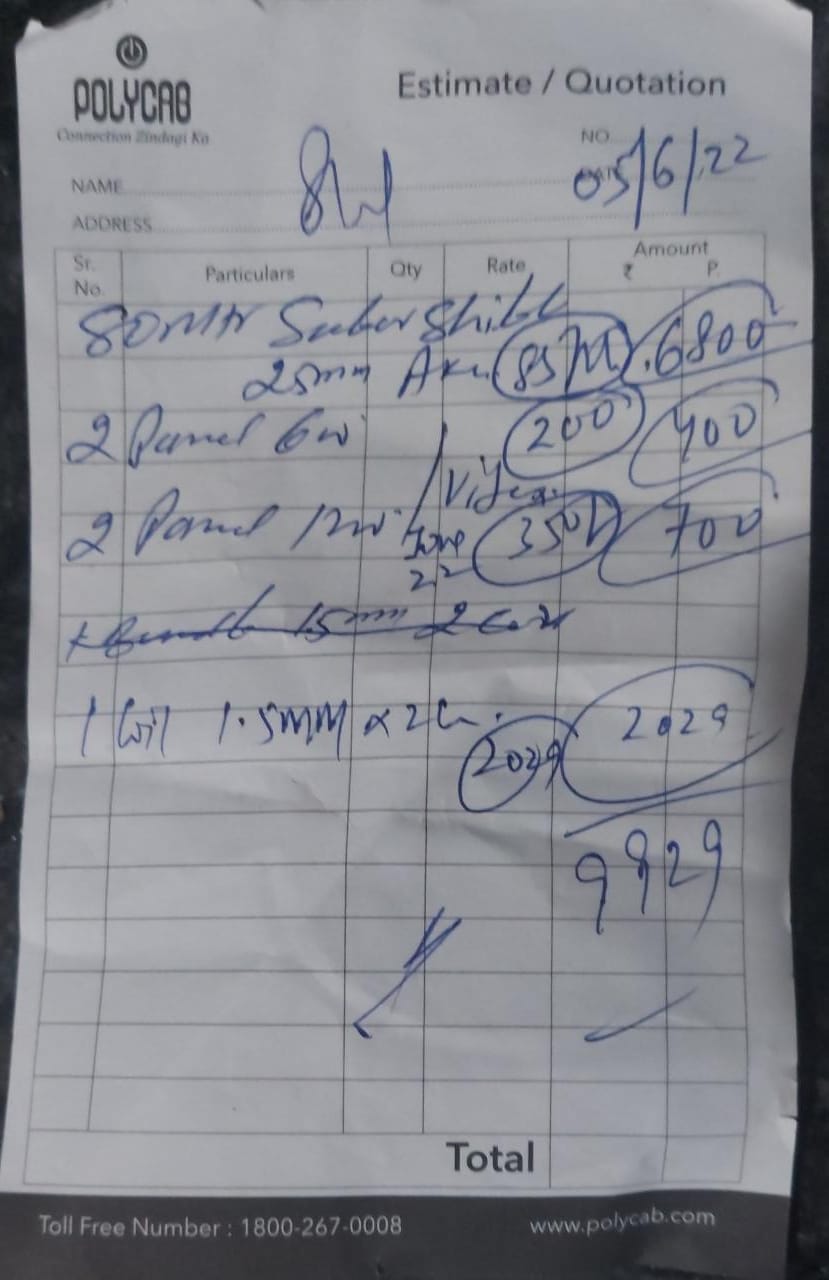 POLYCAB
Connection Zindagi Ka
Estimate / Quotation
NO.
05/6/22
NAME
ADDRESS
Sr. No. Particulars Qty Rate Amount ₹ P.
80 Mtr
25mm 85 M 6800
2 Panel 6w 200 400
2 Panel 12w 350 700
15mm 2
1 Coil 1.5MM x 2 2029 2029
9829
Total
Toll Free Number : 1800-267-0008 www.polycab.com